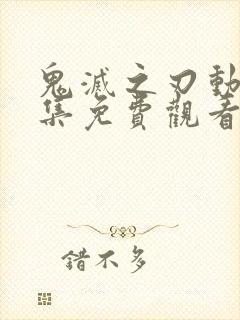 鬼滅之刃動
集免費觀看
錯不多